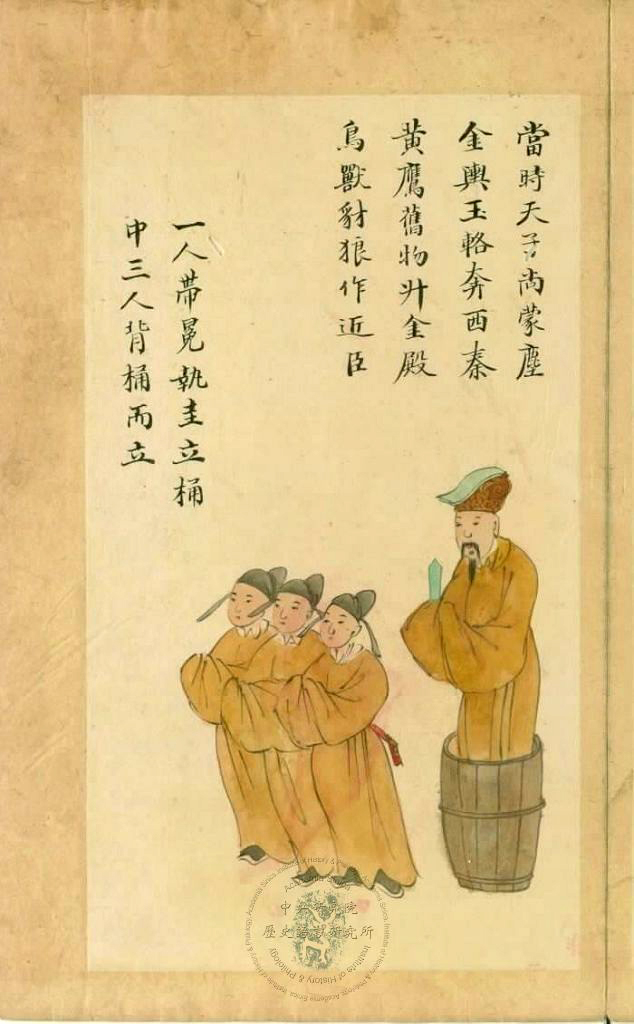 當時天子尚蒙塵
金輿玉輅奔西秦
黃鷹舊物升金殿
鳥獸豺狼作近臣
一人帶冕執圭立桶
中三人背桶而立
中央研究院
歷史語言研究所
Institute of History & Philology, Academia Sinica